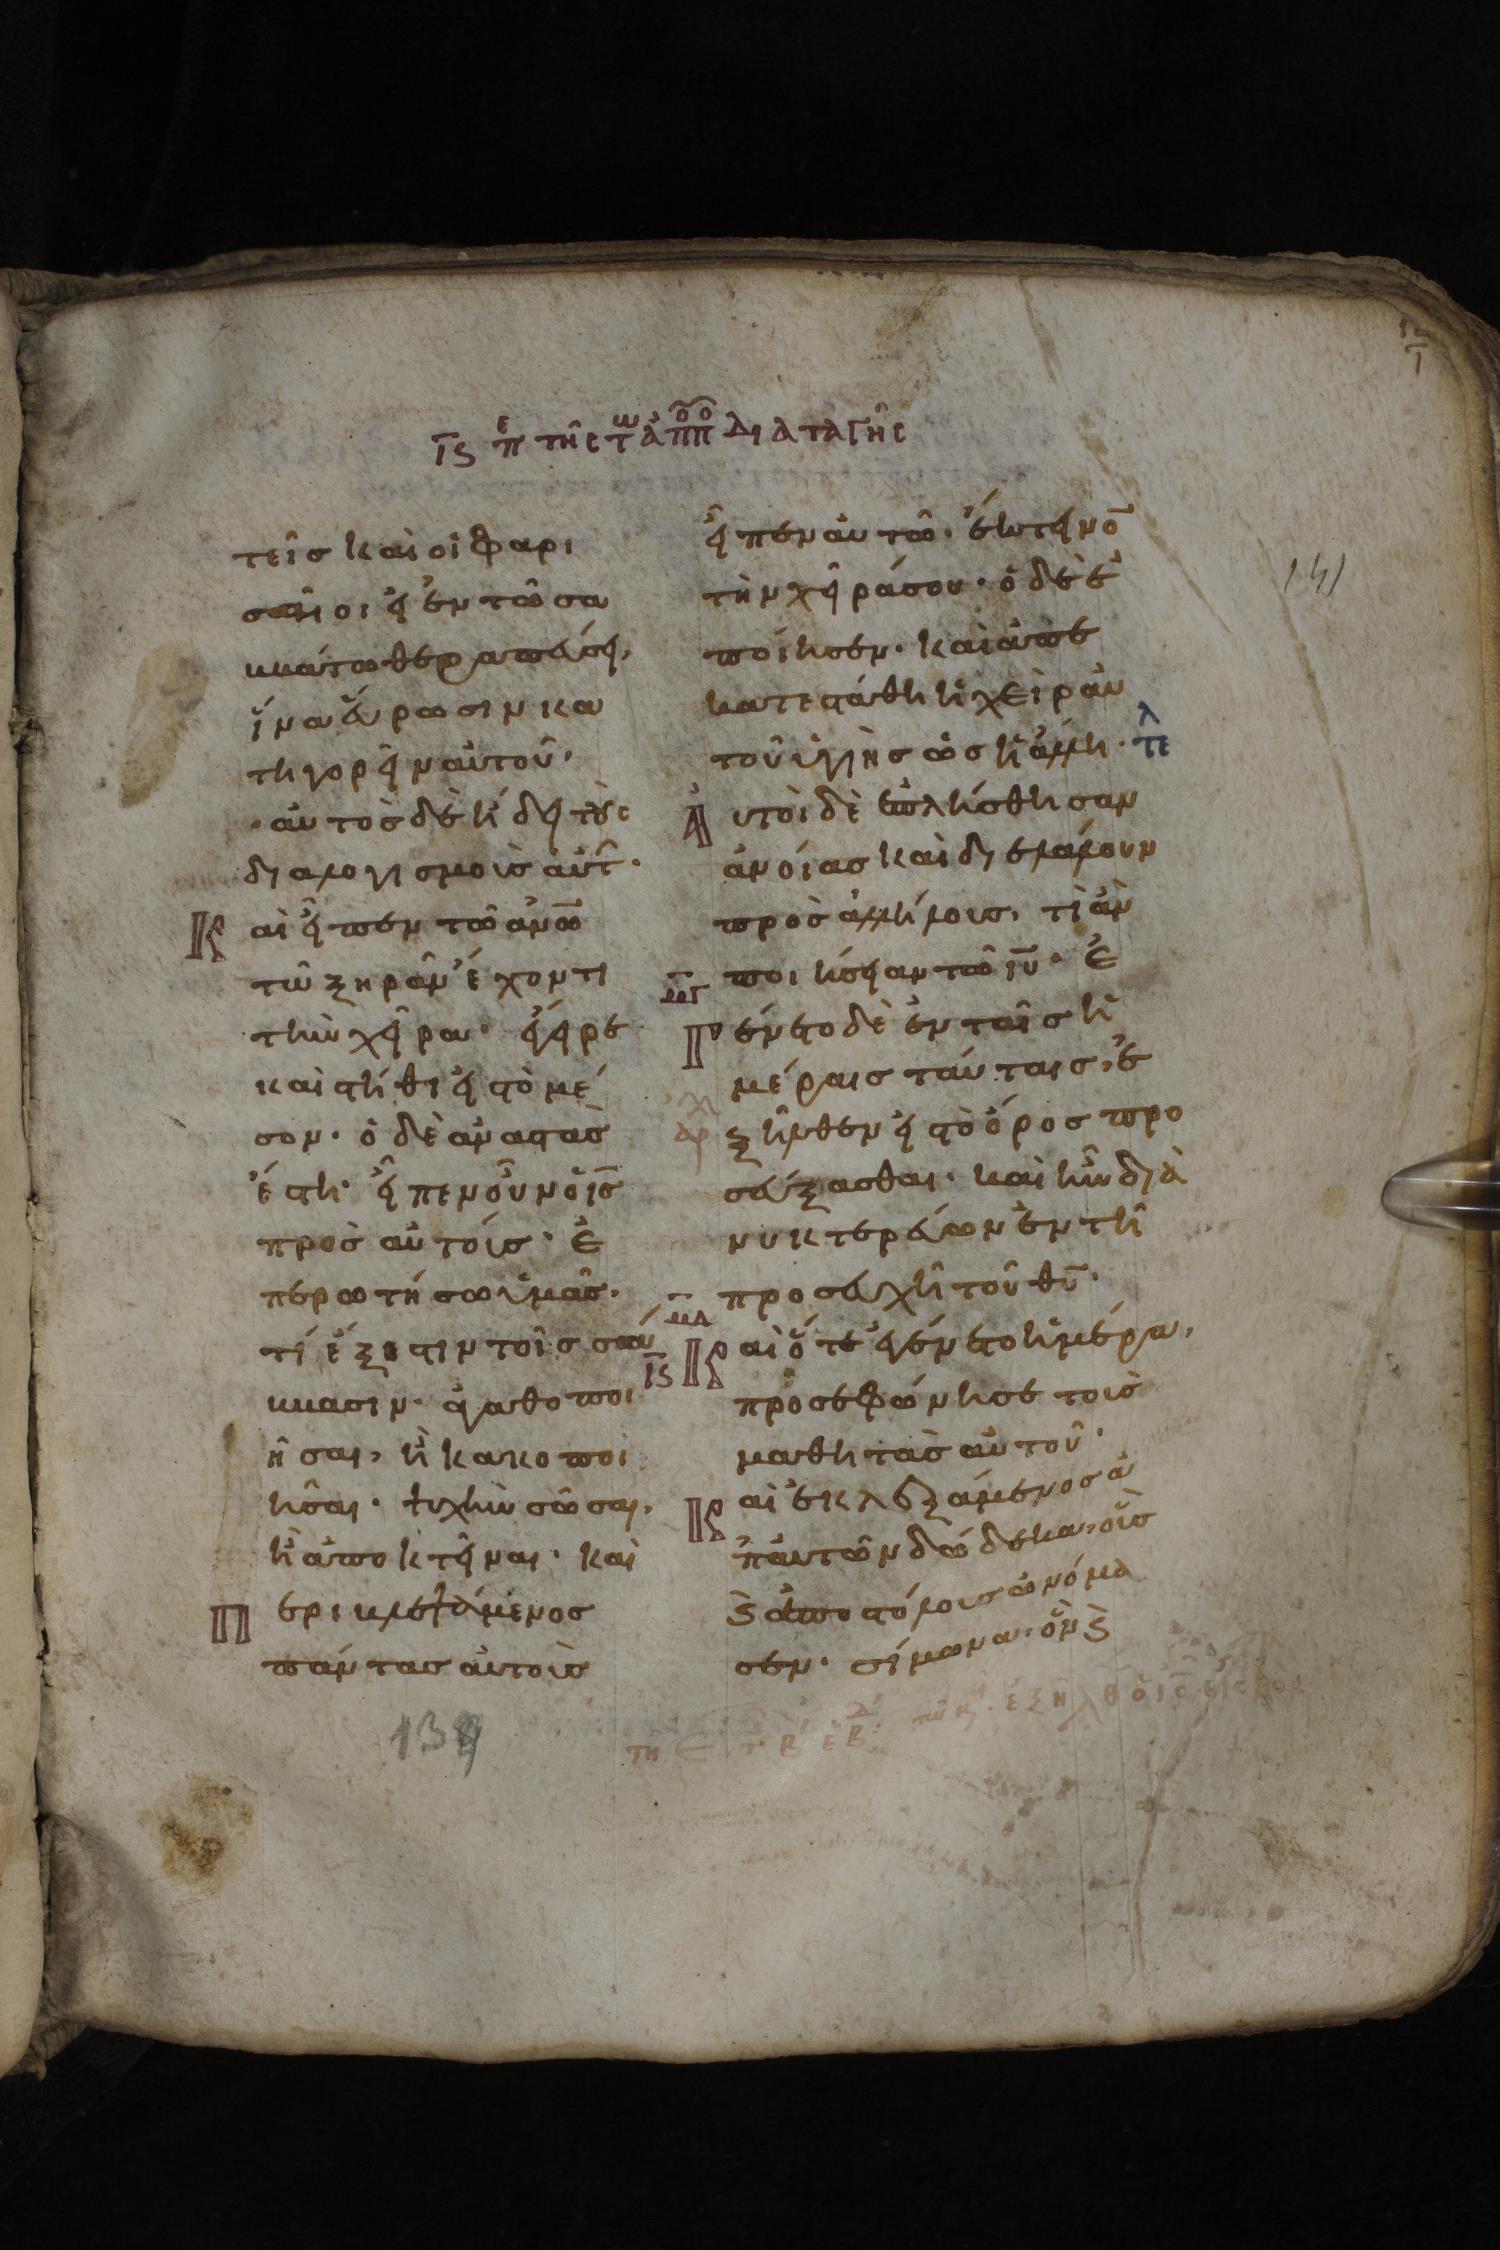 ιϛ πε τῆς τω ἀποπο διαταγῆς
τεῖσ καὶ οἱ φαρι
σαῖοι εἰ ἐν τῶ σα
ββάτω θεραπεύσει,
ἵνα εὕρωσιν κα
τηγορεῖν αὐτοῦ·
αὐτὸσ δὲ ἤδει τοὺς
διαλογισμοὺσ αὐτ·
Καὶ εἶπεν τῶ ἀνω
τῶ ξηρὰν ἔχοντι
τὴν χεῖρα· ἔγειρε
καὶ στῆθι εἰσ τὸ μέ
σον· ὁ δὲ ἀναστὰσ
ἔστη· εἶπεν οὖν ὁ ισ
πρὸσ αὐτούσ· ἐ
περωτήσω ὑμᾶσ·
τί ἔξεστιν τοῖσ σάβ
βασιν· ἀγαθοποι
ῆσαι, ἢ κακοποι
ῆσαι· ψυχὴν σῶσαι,
ἢ ἀποκτεῖναι· καὶ
Περιβλεψάμενοσ
πάντασ αὐτοὺσ
εἶπεν αὐτῶ· ἔκτεινο
τὴν χεῖρά σου· ὁ δὲ ἐ
ποίησεν· καὶ ἀπε
κατεστάθη ἡ χεὶρ αὐ
τοῦ ὑγιὴσ ὡσ ἡ ἄλλη· τελ
Αὐτοὶ δὲ ἐπλήσθησαν
ἀνοίασ καὶ διελάλουν
πρὸσ ἀλλήλουσ, τί ἂν
ποιήσειαν τῶ ιυ· Ἐ
Γένετο δὲ ἐν ταῖσ ἡ
μέραισ ταύταισ, ἐ
αρχ
ξῆλθεν εἰσ τὸ ὄροσ προ
σεύξασθαι· καὶ ἦν δια
νυκτερεύων ἐν τῆ
προσευχῆ τοῦ θυ·
ιϛ
Καὶ ὅτε ἐγένετο ἡμέρα,
προσεφώνησε τοὺσ
μαθητὰσ αὐτοῦ·
Καὶ ἐκλεξάμενοσ ἀ
π' αὐτῶν δώδεκα, οὓσ
ϗ ἀποστόλουσ ὠνόμα
σεν· σίμωνα· ὃν ϗ
139
141